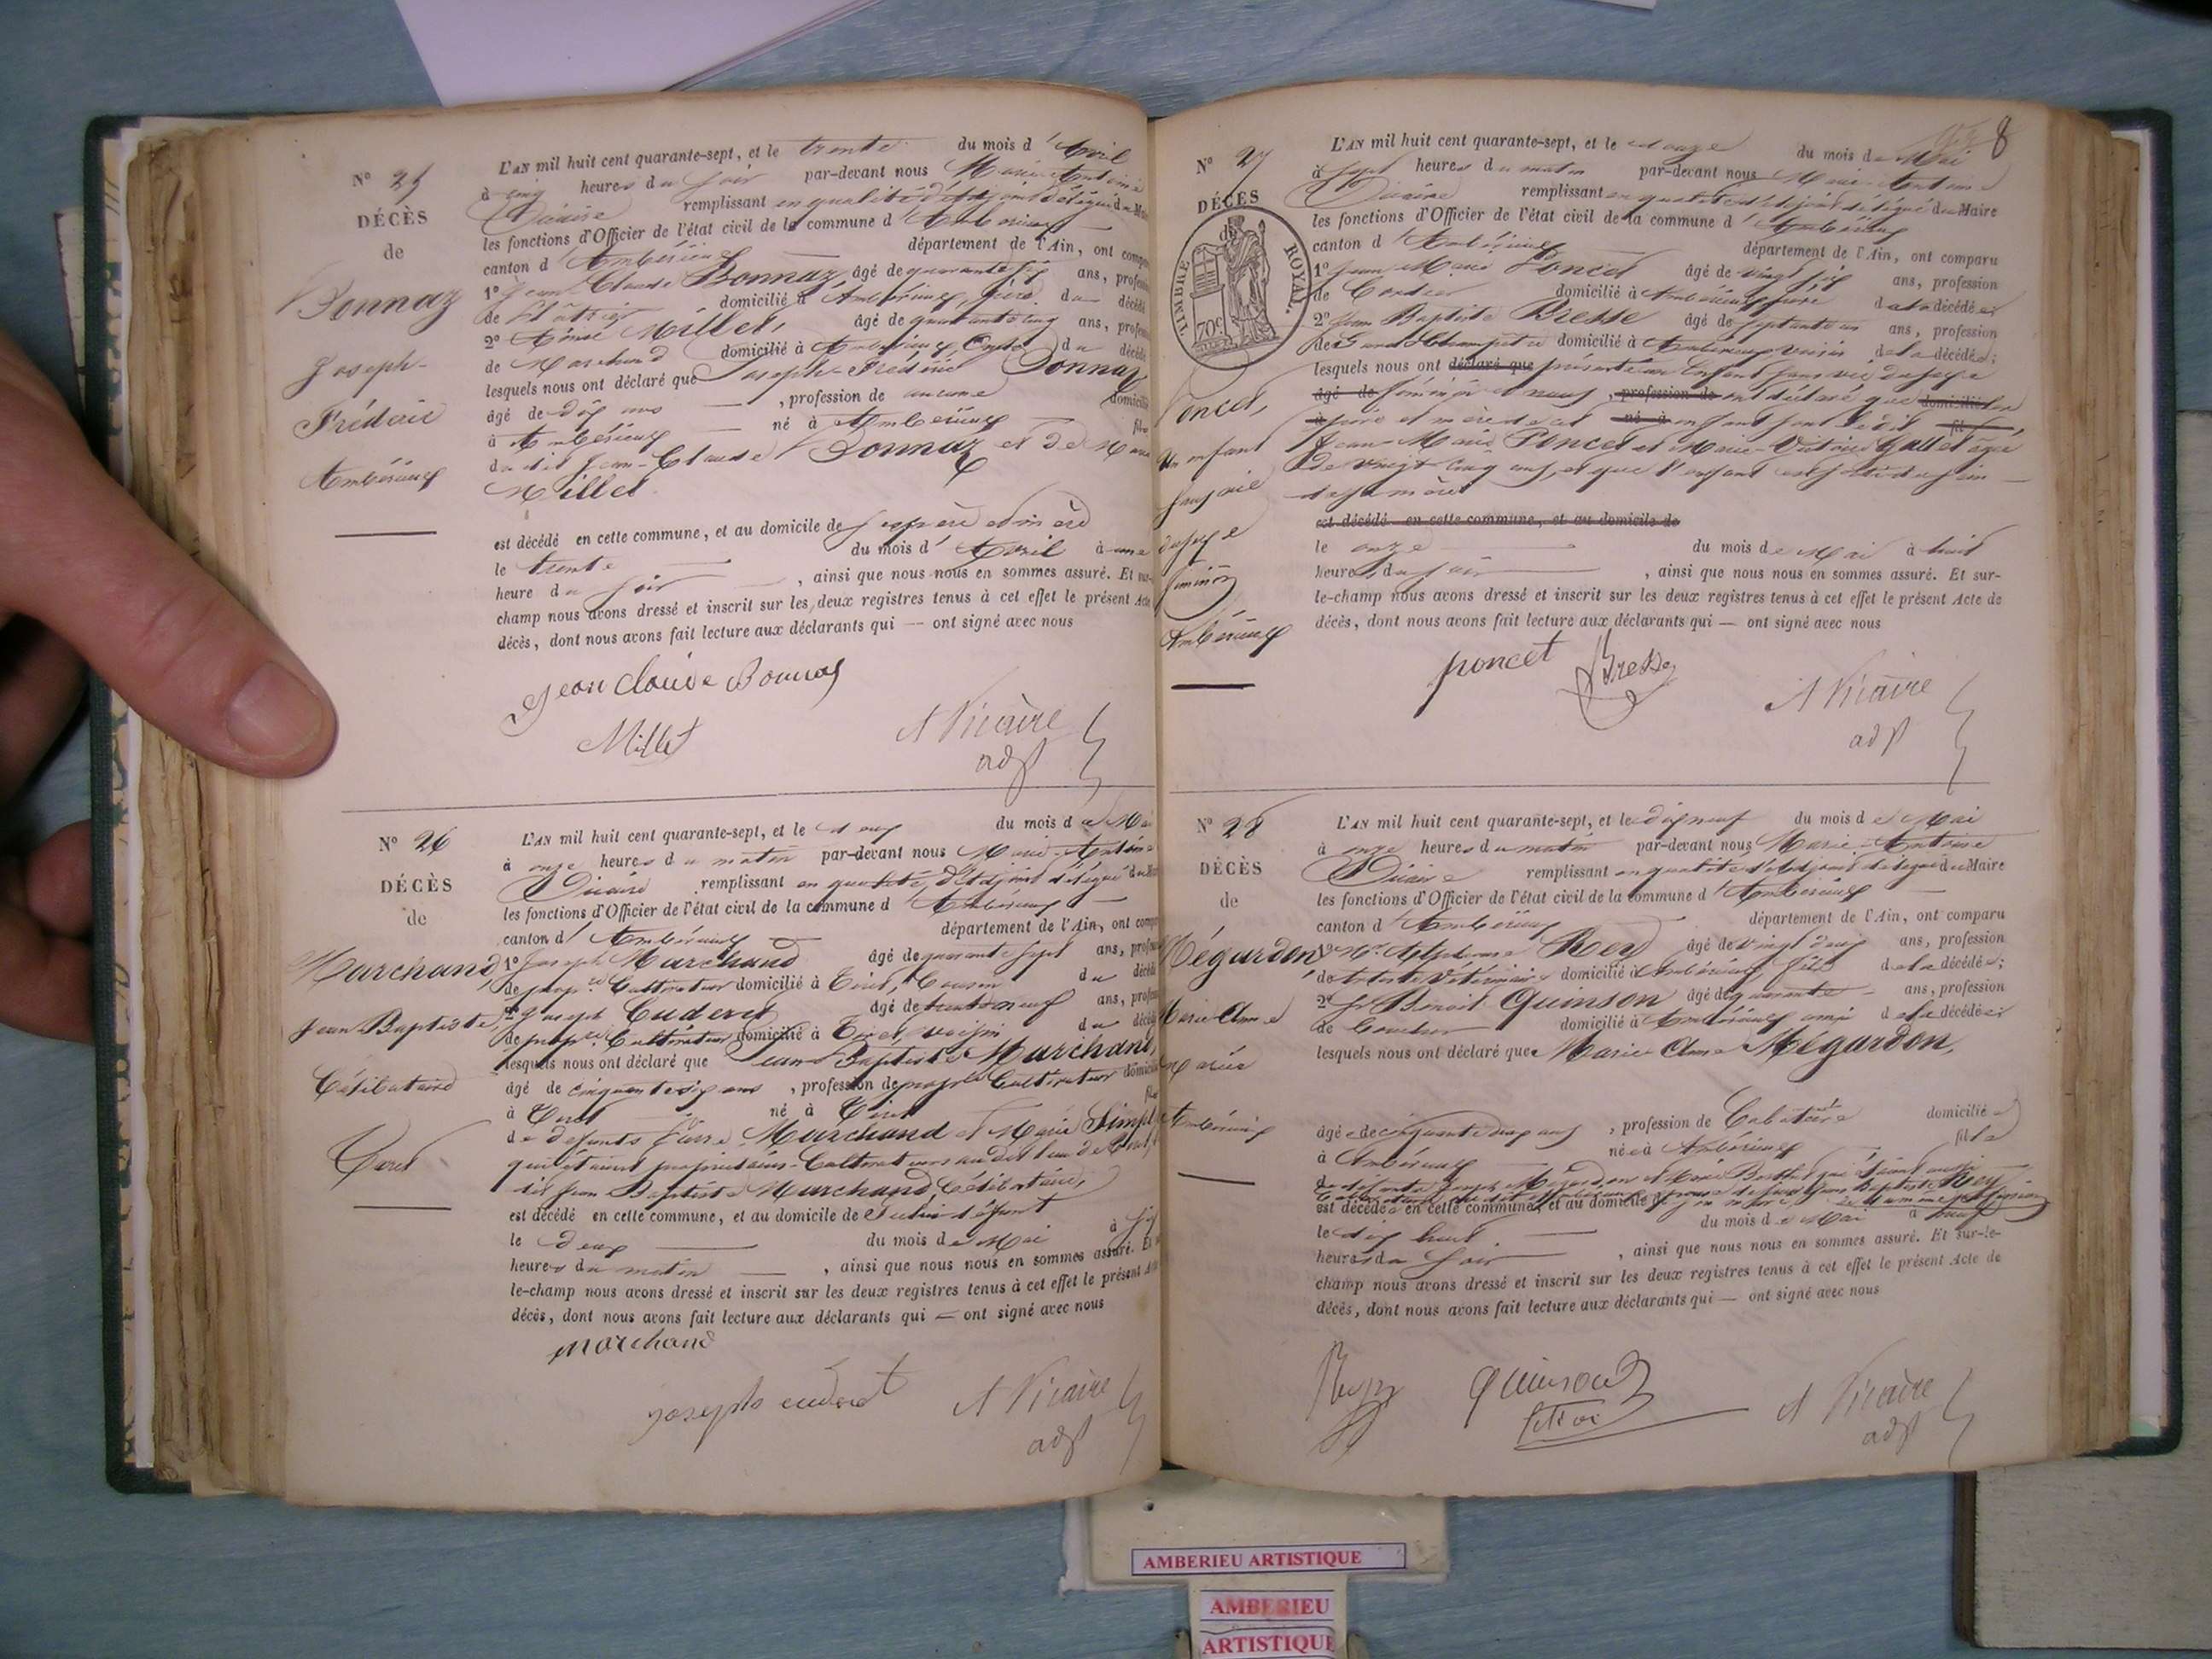 N° 25
DÉCÈS
de
Bonnaz
Joseph-
Frédéric
Ambérieux
L'AN mil huit cent quarante-sept, et le trente du mois d'Avril
à cinq heures du soir par-devant nous Marie-Antoine
Vicaire remplissant en qualité d'Adjoint délégué du Maire
les fonctions d'Officier de l'état civil de la commune d'Ambérieux
canton d'Ambérieux département de l'Ain, ont compa
1° Jean-Claude Bonnaz, âgé de quarante six ans, profes
de domicilié à Ambérieux, père du décédé
2° Aimé Millet, âgé de quarante cinq ans, profes
de Marchand domicilié à Ambérieux, Oncle du décédé
lesquels nous ont déclaré que Joseph-Frédéric Bonnaz
âgé de dix ans , profession de aucune domicilié
à Ambérieux né à Ambérieux fils
du dit Jean-Claude Bonnaz et de Marie
Millet
est décédé en cette commune, et au domicile de ses père et mère
le trente du mois d'Avril à une
heure du soir , ainsi que nous nous en sommes assuré. Et sur-
champ nous avons dressé et inscrit sur les deux registres tenus à cet effet le présent Acte
décès, dont nous avons fait lecture aux déclarants qui — ont signé avec nous
Jean Claude Bonnaz
Millet
A Vicaire
adjt
N° 26
DÉCÈS
de
Marchand,
Jean-Baptiste,
Célibataire
Tiret
L'AN mil huit cent quarante-sept, et le deux du mois de Mai
à onze heures du matin par-devant nous Marie-Antoine
Vicaire remplissant en qualité d'Adjoint délégué du Maire
les fonctions d'Officier de l'état civil de la commune d'Ambérieux
canton d'Ambérieux département de l'Ain, ont compa
1° Joseph Marchand âgé de quarante sept ans, profes
de prop.re Cultivateur domicilié à Tiret, Cousin du décédé
2° Joseph Cuderet âgé de trente neuf ans, profes
de prop.re Cultivateur domicilié à Tiret, voisin du décédé
lesquels nous ont déclaré que Jean-Baptiste Marchand,
âgé de cinquante six ans , profession de prop.re Cultivateur domicilié
à Tiret né à Tiret fils
de défunts Pierre Marchand et Marie
qui étaient propriétaires-Cultivateurs au dit lieu de Tiret,
dit Jean Baptiste Marchand, Célibataire,
est décédé en cette commune, et au domicile de défunt
le deux du mois de Mai à six
heures du matin , ainsi que nous nous en sommes assuré. Et
le-champ nous avons dressé et inscrit sur les deux registres tenus à cet effet le présent Acte
décès, dont nous avons fait lecture aux déclarants qui — ont signé avec nous
marchand
joseph cuderet
A Vicaire
adjt
8
N° 27
DÉCÈS
de
TIMBRE ROYAL.
70c
Poncet,
Un enfant
sans vie
du sexe
féminin
Ambérieux
L'AN mil huit cent quarante-sept, et le onze du mois de Mai
à sept heures du matin par-devant nous Marie-Antoine
Vicaire remplissant en qualité d'Adjoint délégué du Maire
les fonctions d'Officier de l'état civil de la commune d'Ambérieux
canton d'Ambérieux département de l'Ain, ont comparu
1° Jean-Marie Poncet âgé de vingt six ans, profession
de Cordier domicilié à Ambérieux père de la décédée
2° Jean Baptiste Bresse âgé de septante un ans, profession
de Garde Champêtre domicilié à Ambérieux voisin de la décédée;
lesquels nous ont déclaré que présenté un Enfant sans vie du sexe
âgé de féminin et nous , profession de ont déclaré que domicilié les
à père et mère de cet né à enfant sont le dit fil
Jean-Marie Poncet et Marie-Victoire Gallet âgée
de vingt cinq ans, et que l'enfant est sorti du sein
de sa mère
est décédé en cette commune, et au domicile de
le onze du mois de Mai à huit
heures du soir , ainsi que nous nous en sommes assuré. Et sur-
le-champ nous avons dressé et inscrit sur les deux registres tenus à cet effet le présent Acte de
décès, dont nous avons fait lecture aux déclarants qui — ont signé avec nous
poncet
Bresse
A Vicaire
adjt
N° 28
DÉCÈS
de
Mégardon,
Marie Anne
Mariée
Ambérieux
L'AN mil huit cent quarante-sept, et le dix neuf du mois de Mai
à onze heures du matin par-devant nous Marie-Antoine
Vicaire remplissant en qualité d'Adjoint délégué du Maire
les fonctions d'Officier de l'état civil de la commune d'Ambérieux
canton d'Ambérieux département de l'Ain, ont comparu
1° Mr. Alphonse Rey âgé de vingt deux ans, profession
de Artiste Vétérinaire domicilié à Ambérieux fils de la décédée;
2° Sr Benoit Quinson âgé de quarante ans, profession
de Boucher domicilié à Ambérieux ami de la décédée;
lesquels nous ont déclaré que Marie Anne Mégardon,
âgée de cinquante deux ans , profession de Cabaretière domiciliée
à Ambérieux née à Ambérieux fille
de défunts Joseph Mégardon et Marie
est décédée en cette commune, et au domicile
le dix huit du mois de Mai à neuf
heures du soir , ainsi que nous nous en sommes assuré. Et sur-le-
champ nous avons dressé et inscrit sur les deux registres tenus à cet effet le présent Acte de
décès, dont nous avons fait lecture aux déclarants qui — ont signé avec nous
Rey
quinson
A Vicaire
adjt
AMBERIEU ARTISTIQUE
AMBERIEU
ARTISTIQUE